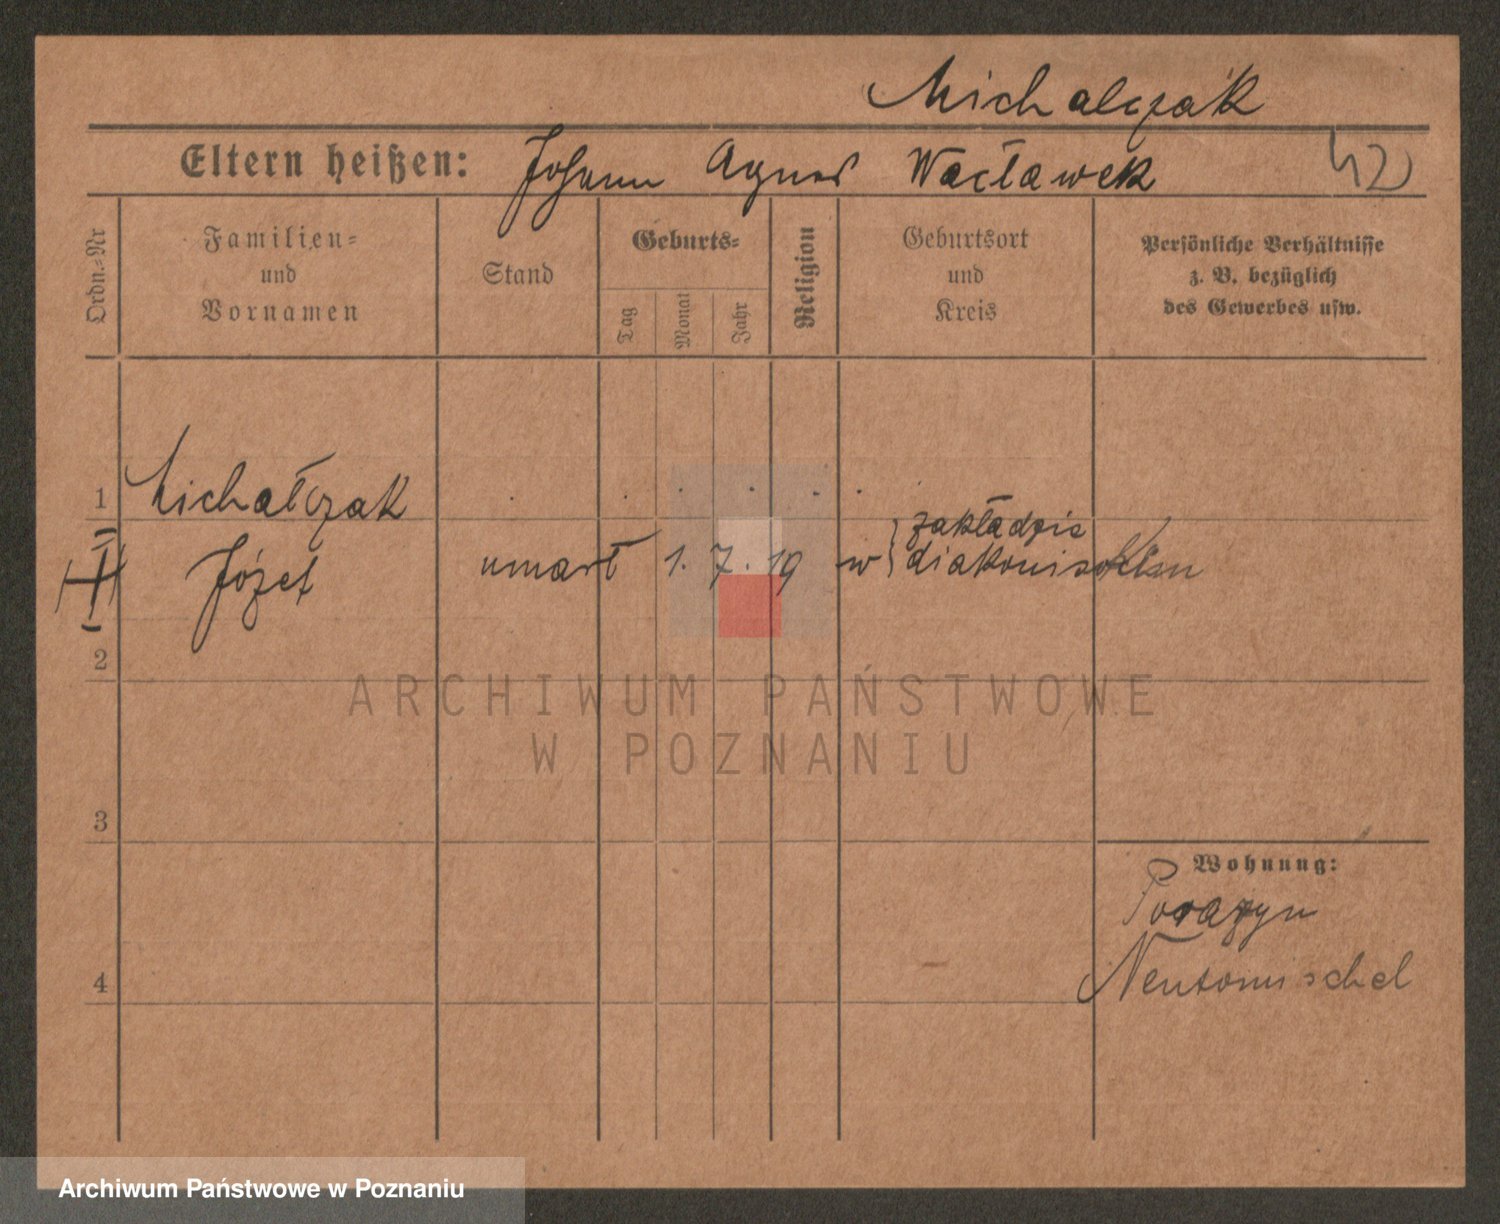 Michalczak
Eltern heißen: Johann Agnes Wacławek 42
Ordn.-Nr
Familien-
und
Vornamen
Stand
Geburts-
Tag
Monat
Jahr
Religion
Geburtsort
und
Kreis
Persönliche Verhältnisse
z. B. bezüglich
des Gewerbes usw.
1 Michałczak
Józef umarł 1. 7. 19 w zakładzie
diakonisek
2
ARCHIWUM PAŃSTWOWE
W POZNANIU
3
Wohnung:
Porazyn
4 Neutomischel
Archiwum Państwowe w Poznaniu